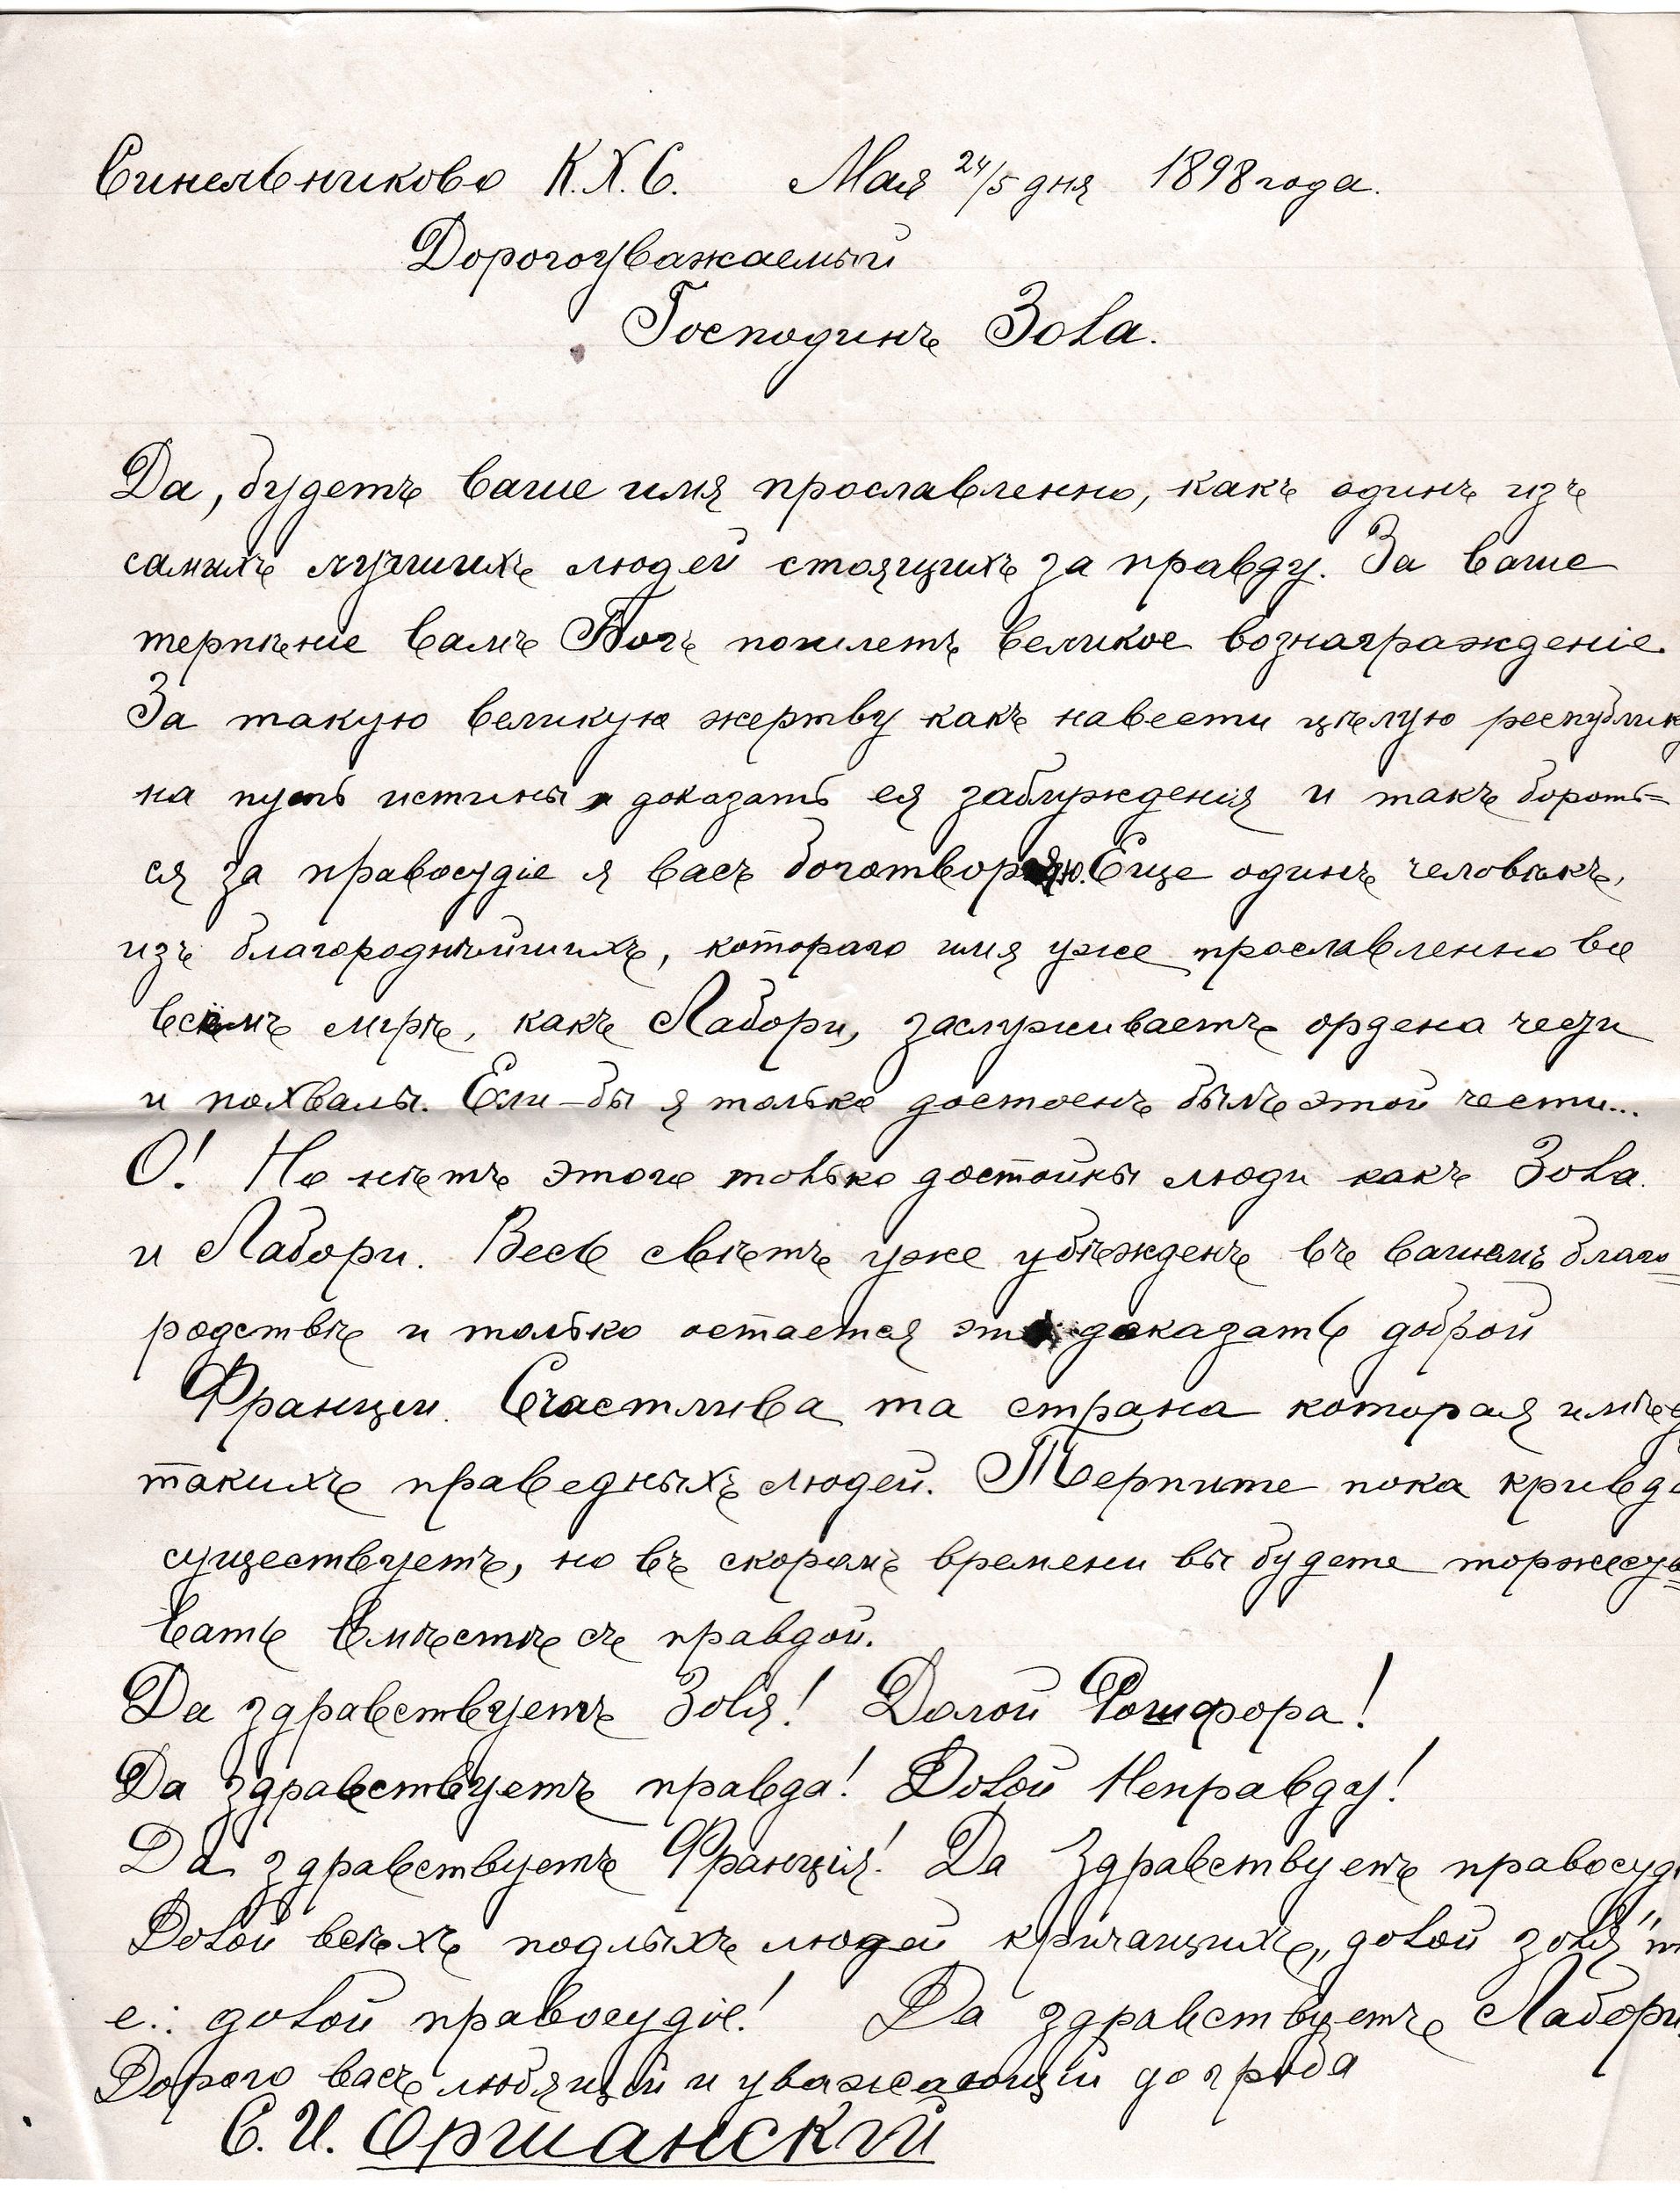 Синельниково К.Х.С. Мая 24/5 дня 1898 года.
Дорогоуважаемый
Господинъ Зоlа.
Да, будетъ ваше имя прославленно, какъ одинъ изъ
самыхъ лучшихъ людей стоящихъ за правду. За ваше
терпѣніе вамъ Богъ пошлетъ великое вознагражденіе.
За такую великую жертву какъ навести цѣлую республику
на путь истины доказать ея заблужденія и такъ бороть=
ся за правосудіе я васъ боготворю. Еще одинъ человѣкъ,
изъ благороднѣйшихъ, котораго имя уже прославленно во
всемъ мірѣ, какъ Лабори, заслуживаетъ ордена чести
и похвалы. Если-бы я только достоенъ былъ этой чести...
О! Но нѣтъ этого тоlько достойны люди какъ Зоlа.
и Лабори. Весь свѣтъ уже убѣжденъ въ вашемъ благо=
родствѣ и только остается это доказать доброй
Франціи. Счастлива та страна которая имѣе
такихъ праведныхъ людей. Терпите пока кривда
существуетъ, но въ скоромъ времени вы будете торжесув=
вать вмѣстѣ съ правдой.
Да здравствуетъ Зоlя! Долой Рошфора!
Да здравствуетъ правда! Доlой Неправду!
Да здравствуетъ Франція! Да Здравствуетъ правосуд
Доlой всѣхъ подлыхъ людей кричащихъ „доlой зоlя" т
е.: доlой правосудіе! Да здравствуетъ Лабори
Дорого васъ любящій и уважающій до гроба
С. И. Оршанскій